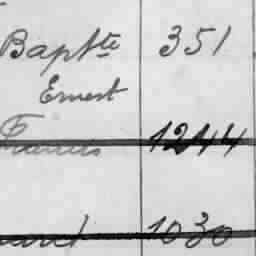 Baptte 351
Ernest
Francis 1244
1030